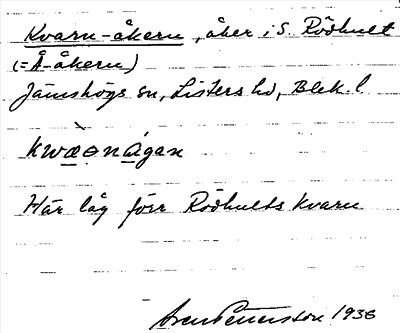 Kvarn-åkern, åker i S. Rödhult
(= Å-åkern)
Jämshögs sn, Listers hd, Blek. l
Här låg förr Rödhults kvarn
Sven Pettersson 1936